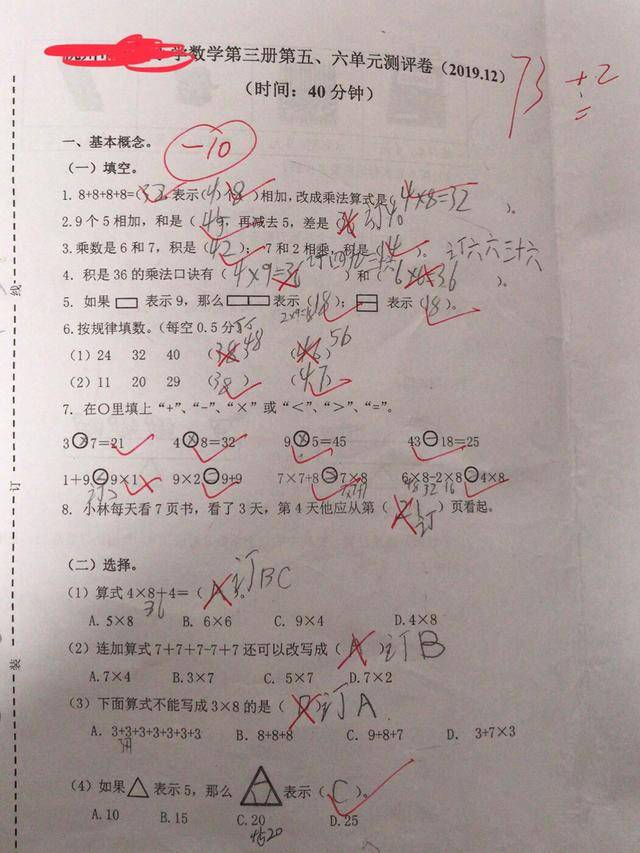 学数学第三册第五、六单元测评卷（2019.12）
73 +2
（时间：40分钟）
一、基本概念。
-10
（一）填空。
1. 8+8+8+8=(32)表示(4)个(8)相加，改成乘法算式是(4×8=32)。
2.9个5相加，和是(45)，再减去5，差是( )订40
3.乘数是6和7，积是(42)；7和2相乘，积是(14)。订六六三十六
4. 积是36的乘法口诀有(4×9=36)和(6×6=36)。
5. 如果 表示9，那么 表示(18)； 表示(18)。
2×9=18
6.按规律填数。(每空0.5分)
（1）24 32 40 (38)48 (46)56
（2）11 20 29 (38) (47)
7. 在○里填上“+”、“-”、“×”或“＜”、“＞”、“=”。
3×7=21 4×8=32 9×5=45 43-18=25
1+9 9×1 9×2=9+9 7×7+8 7×8 6×8-2×8 4×8
8. 小林每天看7页书，看了3天，第4天他应从第( )页看起。
订
（二）选择。
（1）算式4×8+4=(A)。订BC
36
A. 5×8 B. 6×6 C. 9×4 D.4×8
（2）连加算式7+7+7-7+7还可以改写成(A)订B
A.7×4 B.3×7 C. 5×7 D.7×2
（3）下面算式不能写成3×8的是(D)订A
A. 3+3+3+3+3+3+3 B. 8+8+8 C. 9+8+7 D. 3+7×3
（4）如果 表示5，那么 表示(C)。
A.10 B.15 C.20 D.25
线
订
装